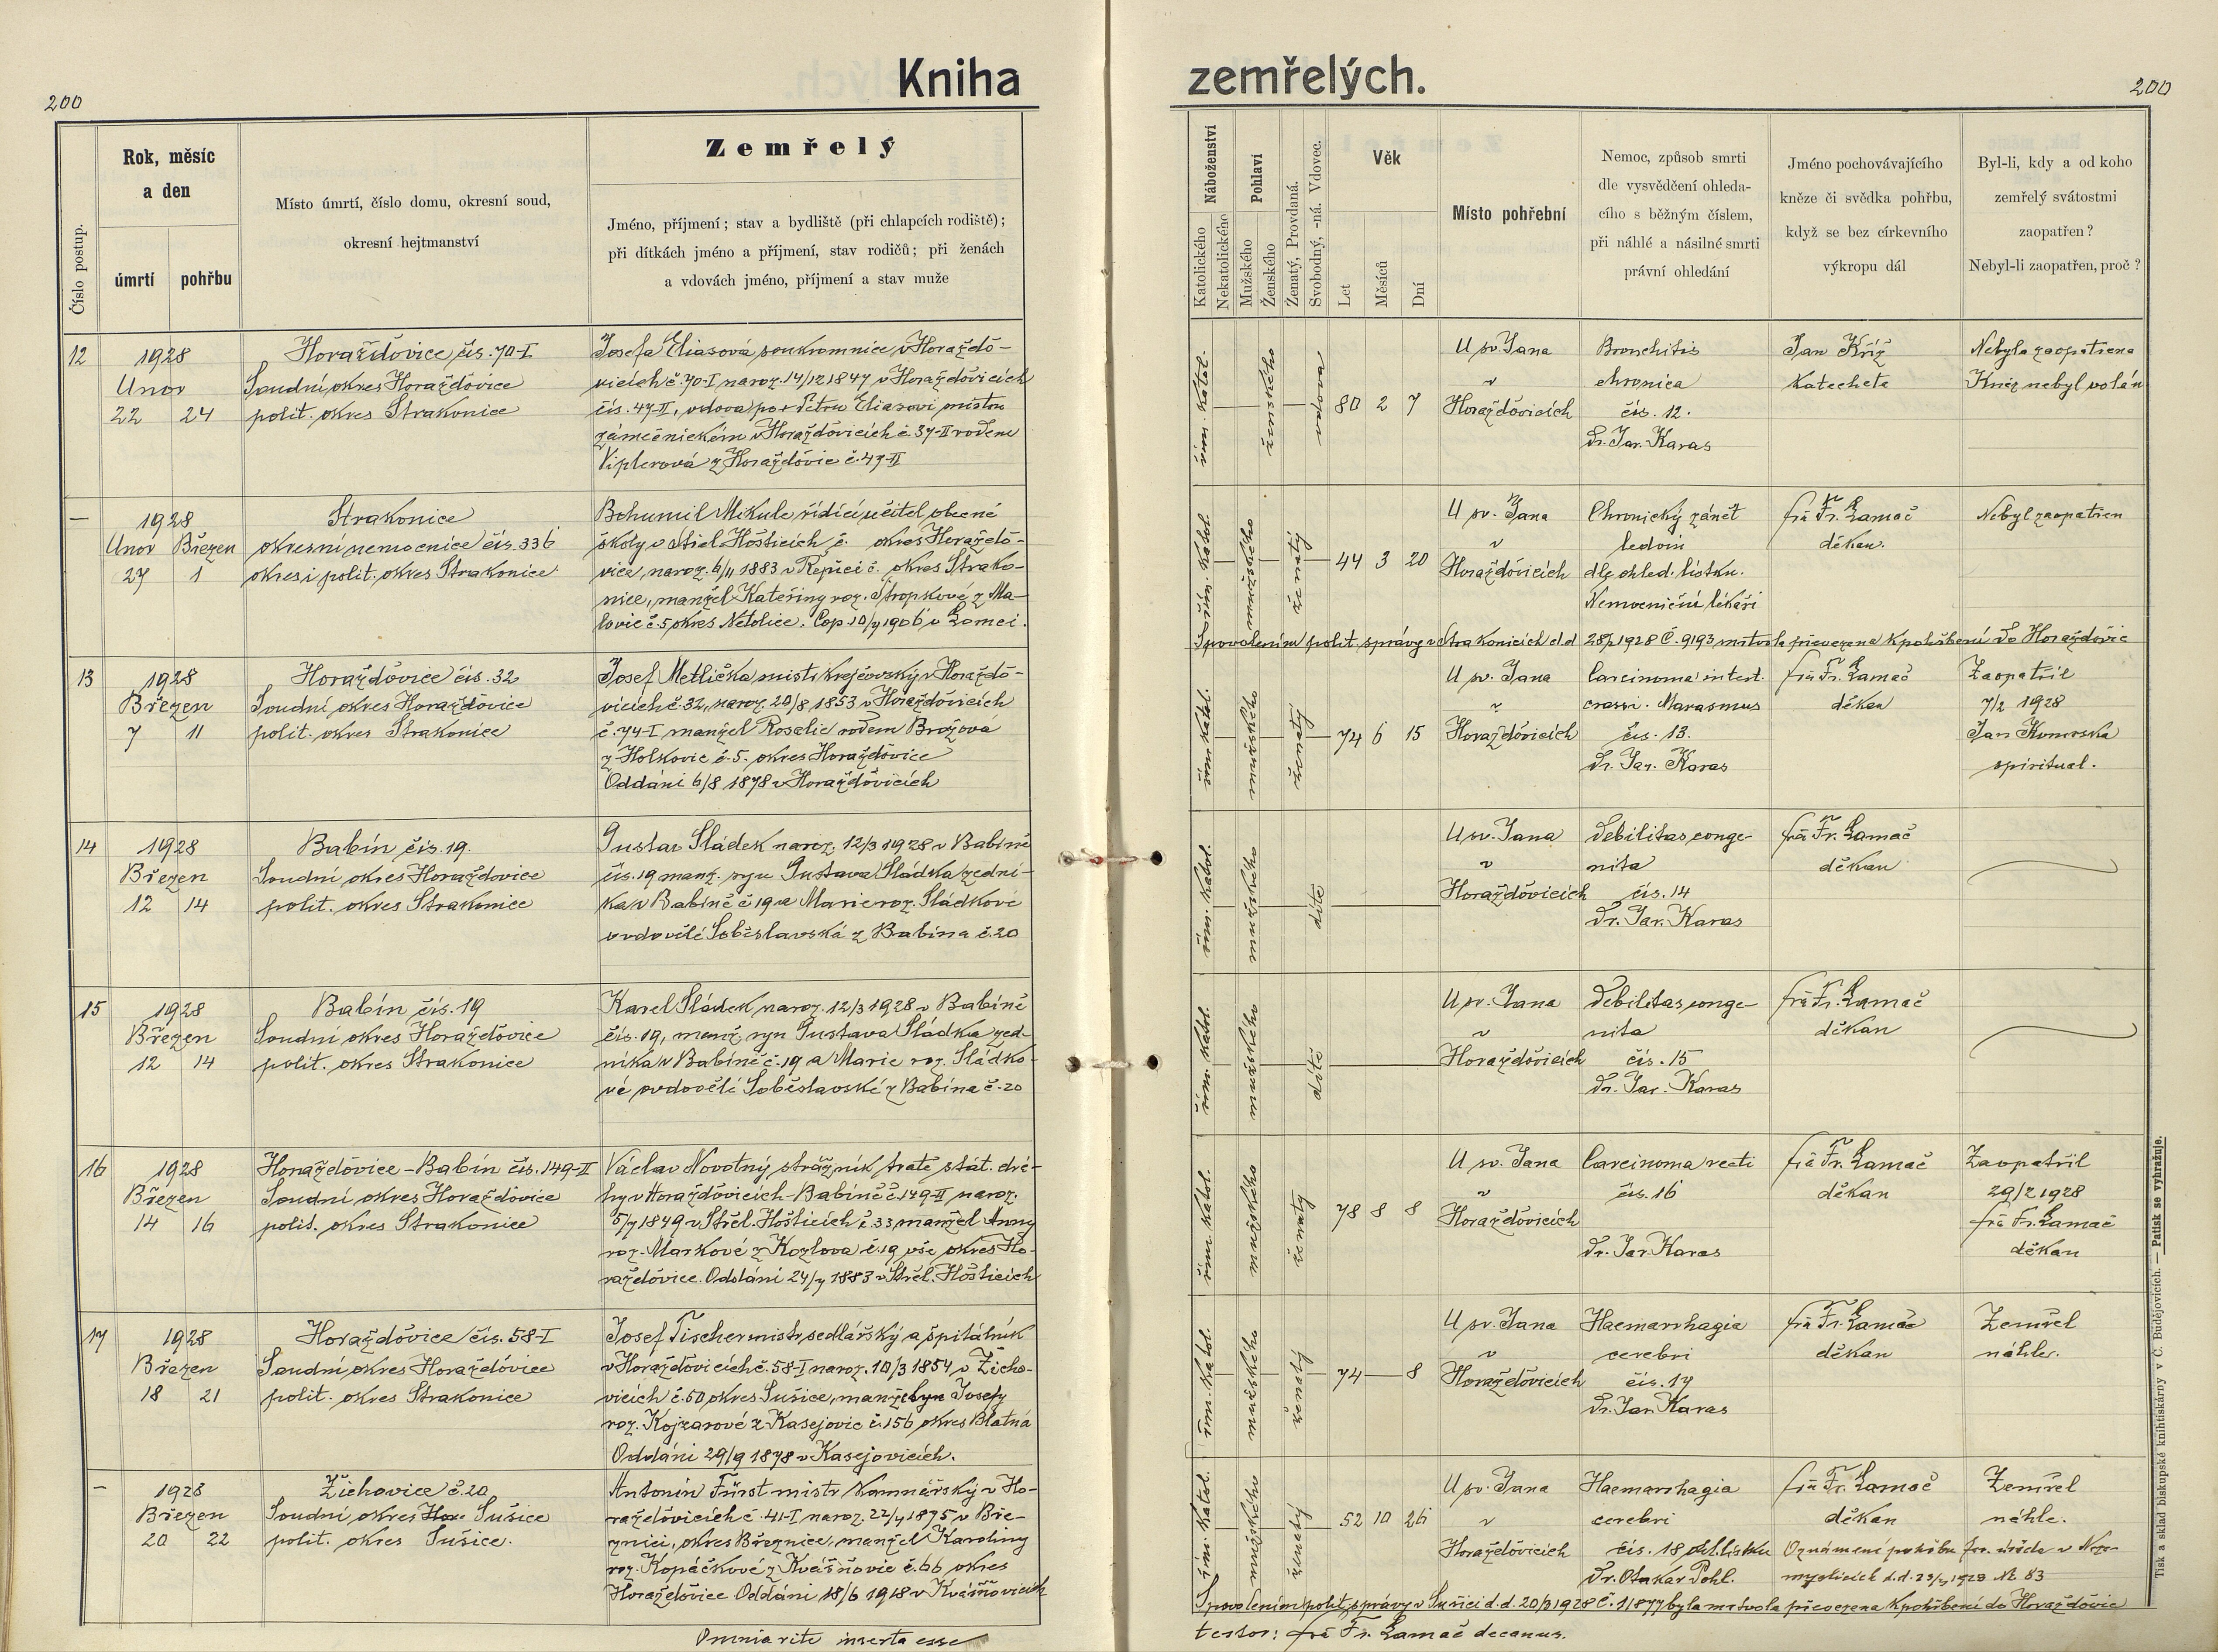 200
Kniha
Rok, měsíc
a den
Zemřelý
Číslo postup.
úmrtí
pohřbu
Místo úmrtí, číslo domu, okresní soud,
okresní hejtmanství
Jméno, příjmení; stav a bydliště (při chlapcích rodiště);
při dítkách jméno a příjmení, stav rodičů; při ženách
a vdovách jméno, příjmení a stav muže
12
1928
Únor
22 24
Horažďovice čís. 70-I
Soudní okres Horažďovice
polit. okres Strakonice
Josefa Eliasová soukromnice v Horaždo-
vicích č. 70-I naroz. 14/12 1847 v Horažďovicích
čís. 47-II, vdova po + Petru Eliasovi mistru
zámečnickém v Horažďovicích č. 37-II rodená
Viplerová z Horažďovic č. 47-II
—
1928
Únor Březen
27 1
Strakonice
okresní nemocnice čís. 336
okres i polit. okres Strakonice
Bohumil Mikule řídící učitel obecné
školy v Střel. Hošticích č. okres Horaždo-
vice, naroz. 6/11 1883 v Řepici č. okres Strako-
nice, manžel Kateřiny roz. Stropkové z Ma-
lovic č. 5 okres Netolice. Cop. 10/7 1906 v Lomci.
13
1928
Březen
7 11
Horažďovice čís. 32
Soudní okres Horažďovice
polit. okres Strakonice
Josef Metlička mistr krejčovský v Horaždo-
vicích č. 32, naroz. 20/8 1853 v Horažďovicích
č. 74-I manžel Rosalie rodem Brožová
z Holkovic č. 5. okres Horažďovice
Oddáni 6/8 1878 v Horažďovicích
14
1928
Březen
12 14
Babín čís. 19.
Soudní okres Horažďovice
polit. okres Strakonice
Gustav Sládek naroz. 12/3 1928 v Babíně
čís. 19 manž. syn Gustava Sládka zední-
ka v Babíně č 19 a Marie roz. Sládkové
ovdovělé Soběslavská z Babína č. 20
15
1928
Březen
12 14
Babín čís. 19
Soudní okres Horažďovice
polit. okres Strakonice
Karel Sládek naroz. 12/3 1928 v Babíně
čís. 19, manž. syn Gustava Sládka zed-
níka v Babíně č. 19 a Marie roz. Sládko-
vé ovdovělé Soběslavské z Babína č. 20
16
1928
Březen
14 16
Horažďovice-Babín čís. 149-II
Soudní okres Horažďovice
polit. okres Strakonice
Václav Novotný strážník tratě stát. drá-
hy v Horažďovicích-Babíně č 149-II naroz.
5/7 1849 v Střel. Hošticích č. 33 manžel Anny
roz. Markové z Kozlova č. 19 vše okres Ho-
ražďovice. Oddáni 24/7 1883 v Střel. Hošticích
17
1928
Březen
18 21
Horažďovice čís. 58-I
Soudní okres Horažďovice
polit. okres Strakonice
Josef Fischer mistr sedlářský a špitálník
v Horažďovicích č. 58-I naroz. 10/3 1854 v Žicho-
vicích č. 60 okres Sušice, manžel Josefy
roz. Kojzarové z Kasejovic č. 156 okres Blatná
Oddáni 29/9 1878 v Kasejovicích.
—
1928
Březen
20 22
Žichovice č. 20
Soudní okres Hor. Sušice
polit. okres Sušice.
Antonín Fürst mistr kamnářský v Ho-
ražďovicích č. 41-I naroz. 22/4 1875 v Bře-
znici, okres Březnice, manžel Karoliny
roz. Kopáčkové z Kvášňovic č. 66 okres
Horažďovice Oddáni 18/6 1918 v Kvášňovicích
Omnia rite inserta esse
zemřelých.
200
Náboženství
Pohlaví
Katolického
Nekatolického
Mužského
Ženského
Ženatý, Provdaná.
Svobodný, -ná. Vdovec.
Věk
Let
Měsíců
Dní
Místo pohřební
Nemoc, způsob smrti
dle vysvědčení ohleda-
cího s běžným číslem,
při náhlé a násilné smrti
právní ohledání
Jméno pochovávajícího
kněze či svědka pohřbu,
když se bez církevního
výkropu dál
Byl-li, kdy a od koho
zemřelý svátostmi
zaopatřen?
Nebyl-li zaopatřen, proč?
řím. katol.
ženského
vdova
80 2 7
U sv. Jana
v
Horažďovicích
Bronchitis
chronica
čís. 12.
Dr. Jar. Karas
Jan Kříž
katecheta
Nebyla zaopatřena
Kněz nebyl volán
řím. katol.
mužského
ženatý
44 3 20
U sv. Jana
v
Horažďovicích
Chronický zánět
ledvin
dle ohled. lístku.
Nemocniční lékaři
frá Fr. Lamač
děkan.
Nebyl zaopatřen
S povolením polit. správy v Strakonicích d.d 28/2 1928 Č. 9193 mrtvola převezena k pohřbení do Horažďovic
řím. katol.
mužského
ženatý
74 6 15
U sv. Jana
v
Horažďovicích
Carcinoma intest.
crassi. Marasmus
čís. 13.
Dr. Jar. Karas
frá Fr. Lamač
děkan
Zaopatřil
7/2 1928
Jan
spirituál.
řím. katol.
mužského
dítě
U sv. Jana
v
Horažďovicích
Debilitas conge-
nita
čís. 14
Dr. Jar. Karas
frá Fr. Lamač
děkan
řím. katol.
mužského
dítě
U sv. Jana
v
Horažďovicích
Debilitas conge-
nita
čís. 15
Dr. Jar. Karas
frá Fr. Lamač
děkan
řím. katol.
mužského
ženatý
78 8 8
U sv. Jana
v
Horažďovicích
Carcinoma recti
čís. 16
Dr. Jar. Karas
frá Fr. Lamač
děkan
Zaopatřil
29/2 1928
frá Fr. Lamač
děkan
řím. katol.
mužského
ženatý
74 — 8
U sv. Jana
v
Horažďovicích
Haemarrhagia
cerebri
čís. 17
Dr. Jar. Karas
frá Fr. Lamač
děkan
Zemřel
náhle.
řím. katol.
mužského
ženatý
52 10 26
U sv. Jana
v
Horažďovicích
Haemarrhagia
cerebri
čís. 18 ohl. lístku
Dr. Otakar Pohl.
frá Fr. Lamač
děkan
Zemřel
náhle.
Oznámení pohřbu far. úřadu v Nezа-
myslicích d.d. 23/3 1928 Nr. 83
S povolením polit. správy v Sušici d.d. 20/3 1928 č. 11877 byla mrtvola převezena k pohřbení do Horažďovic
testor: frá Fr. Lamač decanus.
Tisk a sklad biskupské knihtiskárny v Č. Budějovicích. — Patisk se vyhražuje.